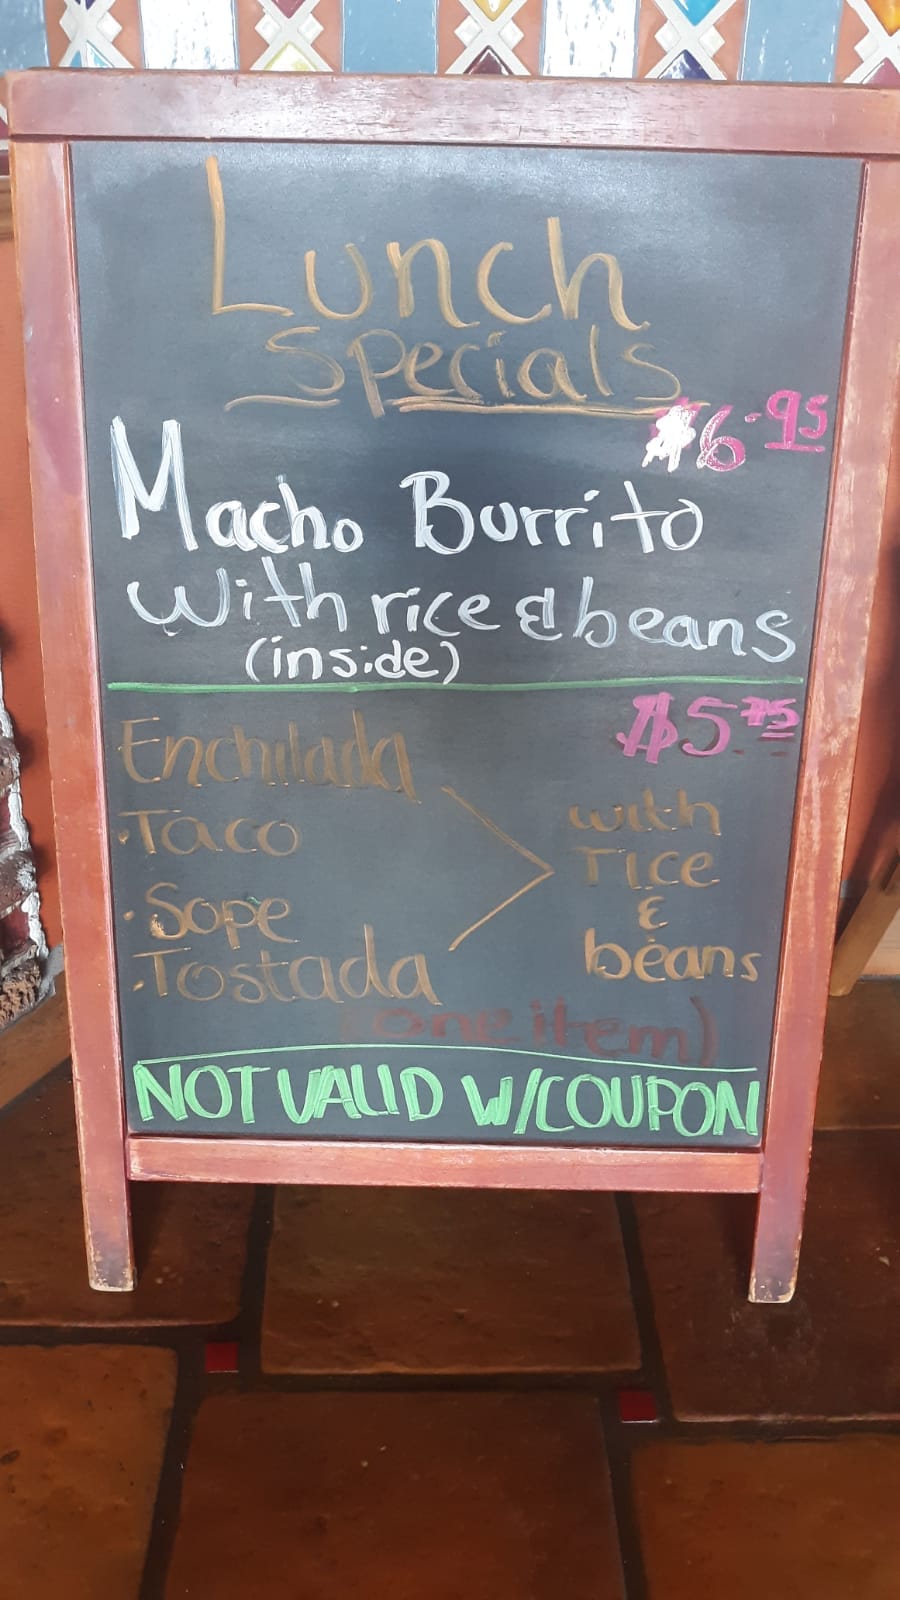 Lunch
Specials
$6.95
Macho Burrito
With rice & beans
(inside)
$5.75
Enchilada
·Taco
·Sope
·Tostada
with
rice
&
beans
(one item)
NOT VALID W/COUPON